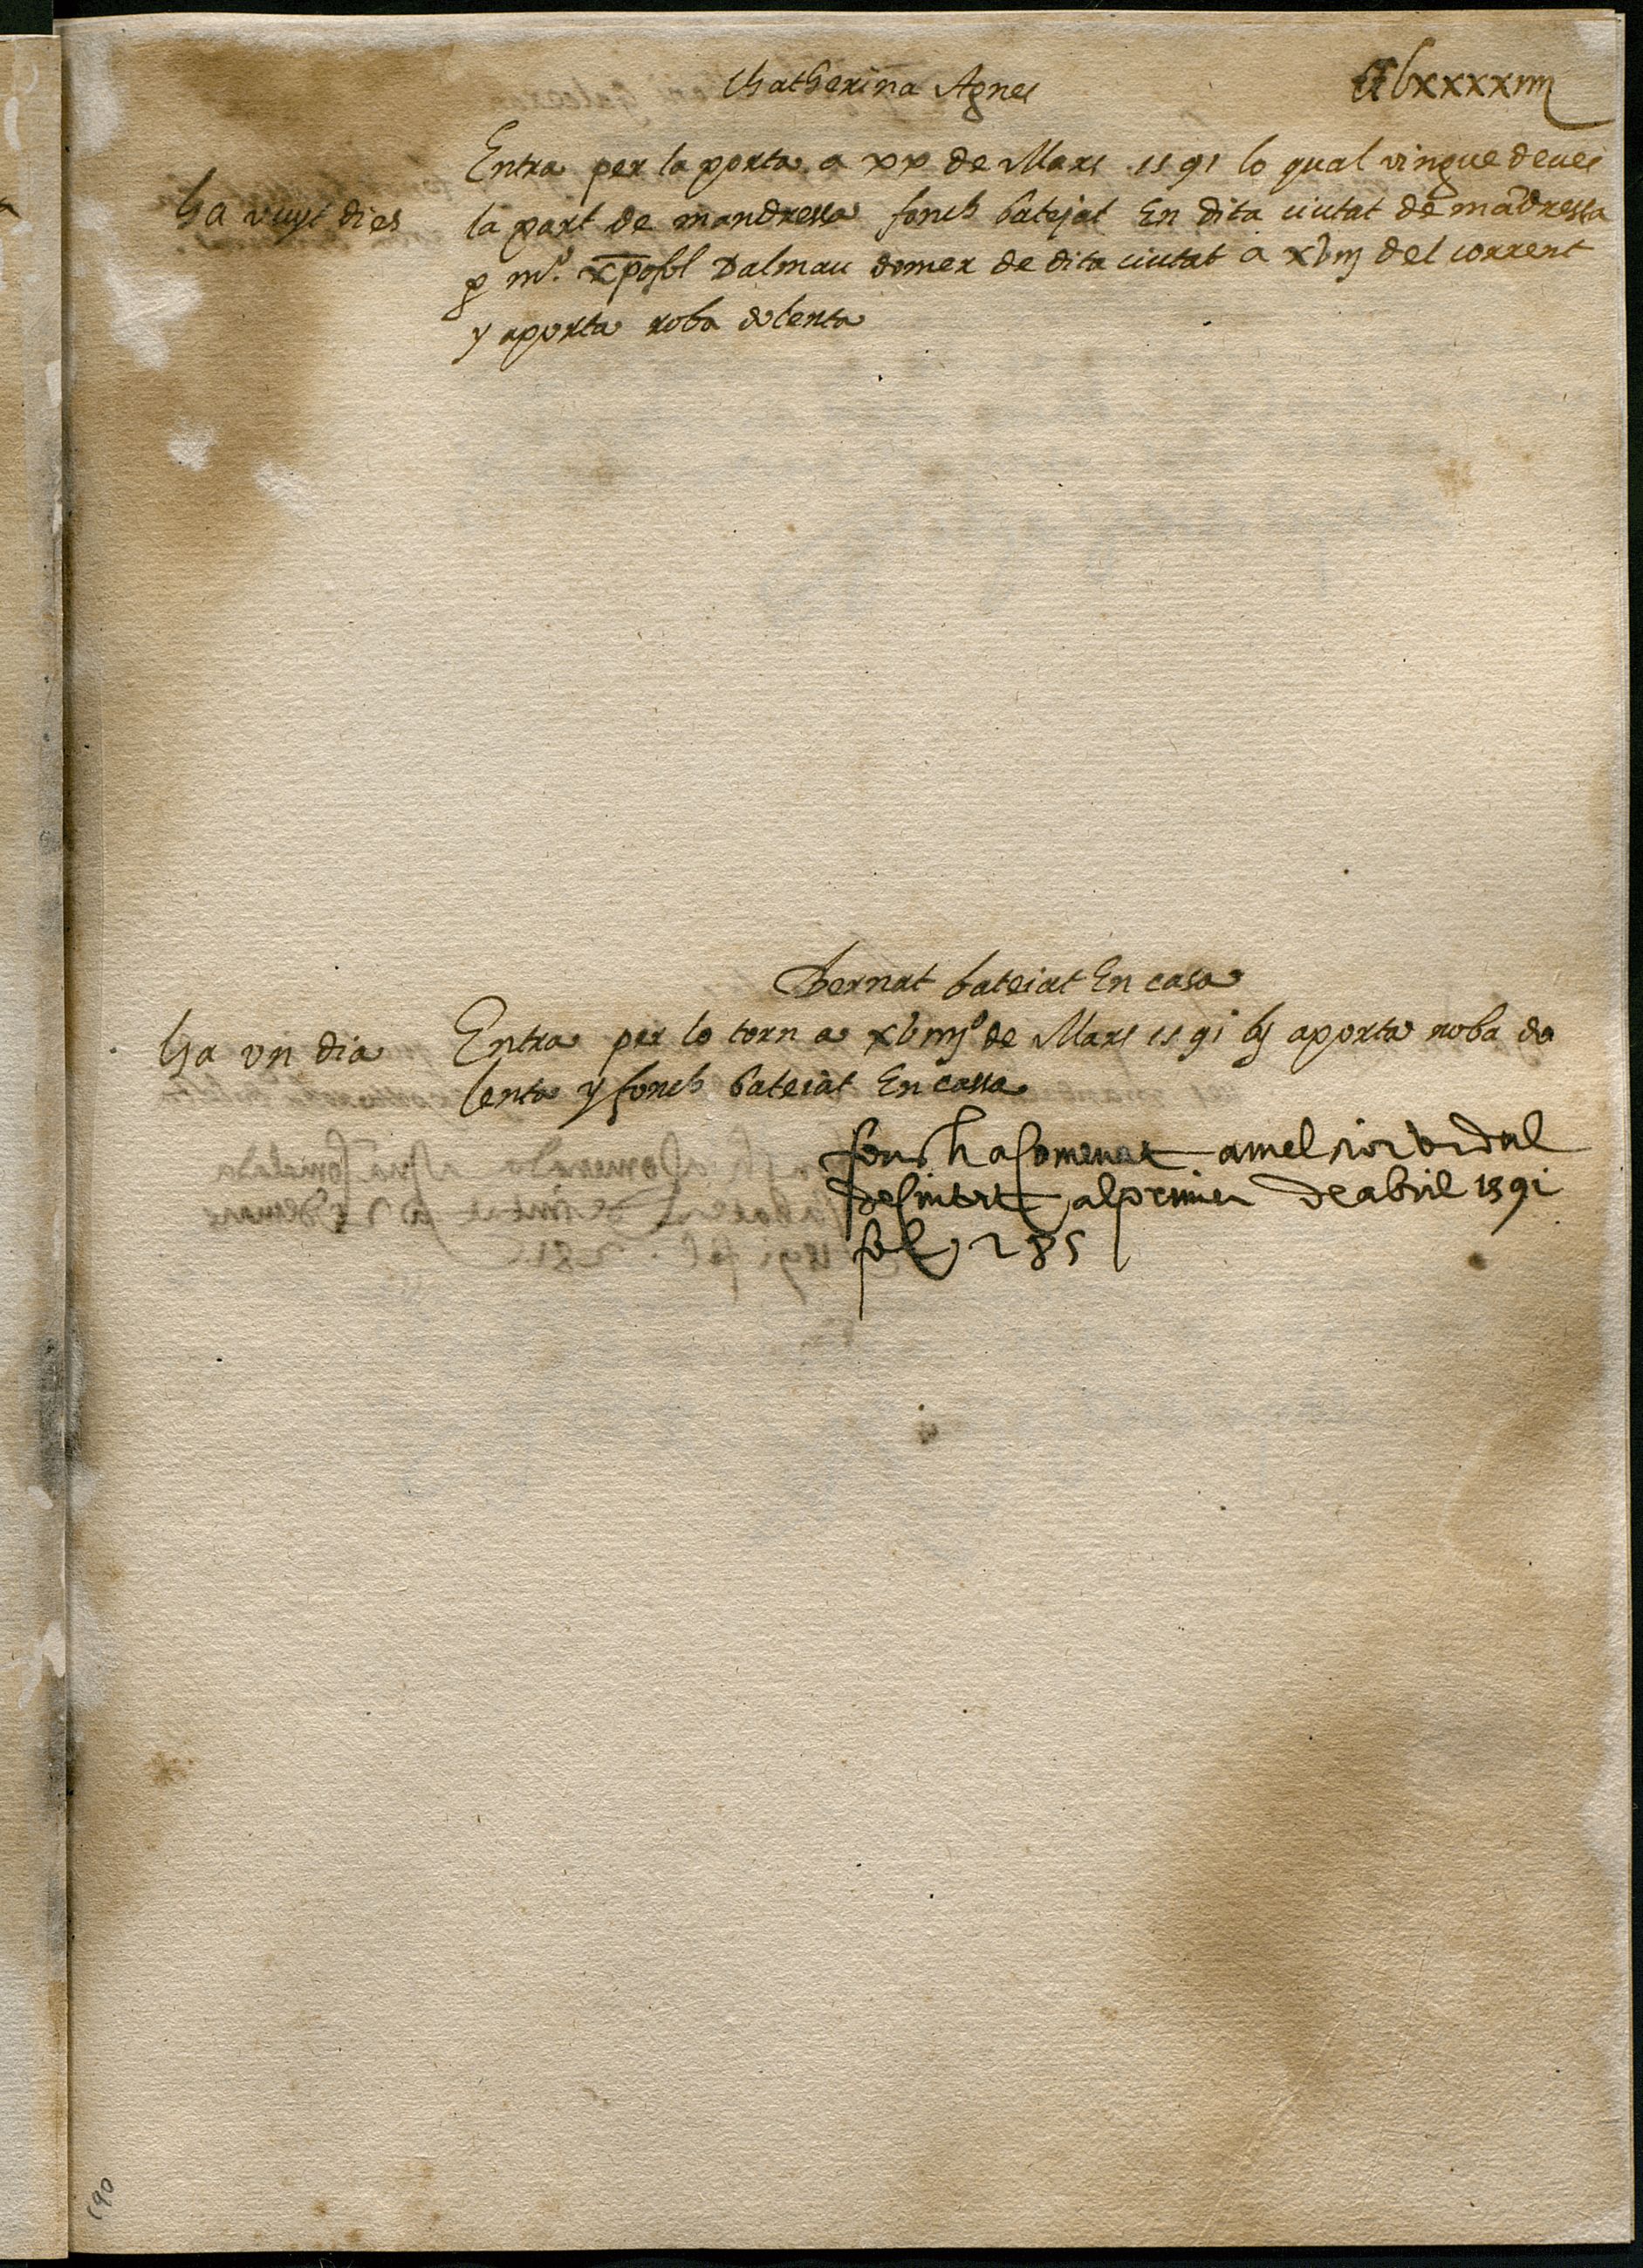 Chatherina Agnes
Clxxxxiiij
Ha vuyt dies
Entra per la porta a xx de Mars 1591 lo qual vingue deves
la part de mandressa fonch batejat En dita ciutat de mādressa
p mº. xp̄ofol Dalmau domer de dita ciutat a xbiij del corrent
y aporta roba dolenta
Bernat bateiat En casa
Ha vn dia
Entra per lo torn a xbiiijº de Mars 1591 aporta roba do
lenta y fonch bateiat En cassa
fonch acomenat amelsior vidal
al primer de abril 1591
fol 285
190